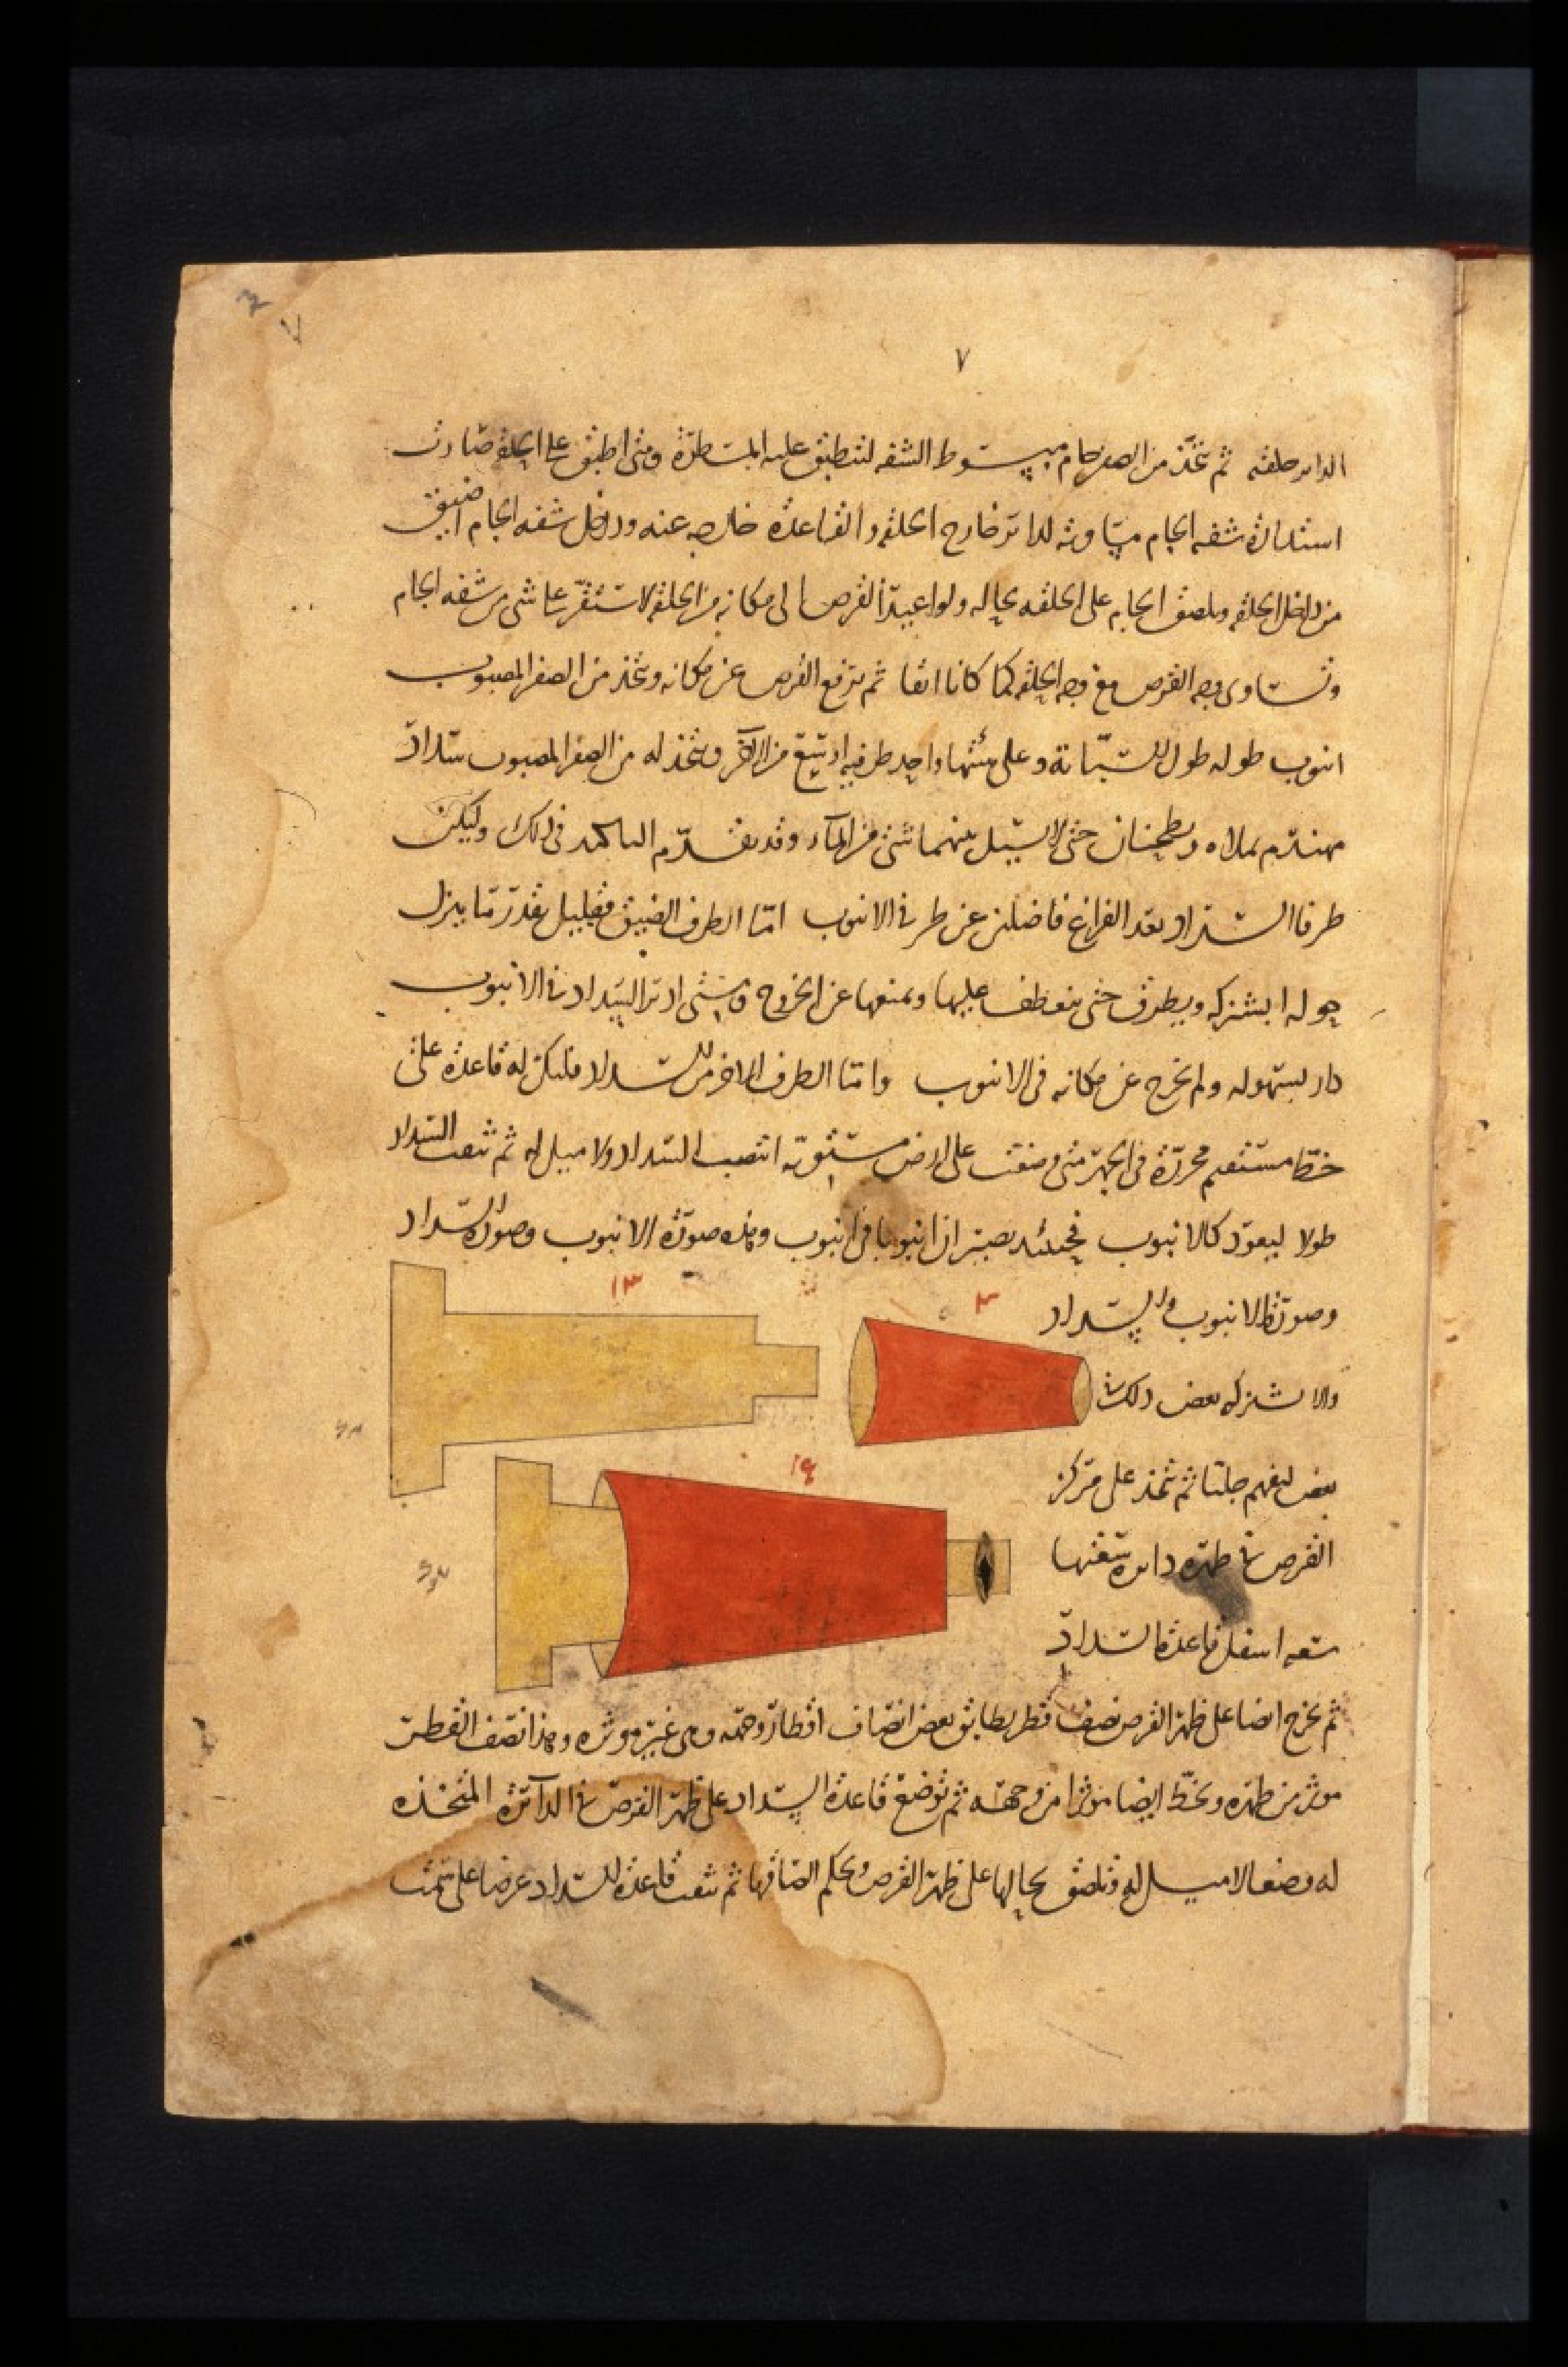 ٧
الداير حلقه ثم يتخذ من الصفر جام مبسوط الشفه لتنطبق عليه المسطرة ومتى اطبق على الحلقه صارت
استدارة شفه الجام مساوية لداير خارج الحلقه والقاعدة خارجه عنه وداخل شفه الجام اضيق
من داخل الحلقه ويلصق الجام على الحلقه بحاله ولو اعيد القرص الى مكانه من الحلقه لاستقر على شى من شفه الجام
وتساوى وجه القرص مع وجه الحلقه كما كانا انفا ثم يرفع القرص عن مكانه ويتخذ من الصفر المصبوب
انبوب طوله طول السبابة وعلى هيئتها واحد طرفيه اوسع من الاخر ويتخذ له من الصفر المصبوب سداد
مهندم بملاه ويطحنان حتى لا يسيل بينهما شى من الماء وقد تقدم التاكيد فى ذلك وليكن
طرفا السداد بعد الفراغ فاضلين عن طرفى الانبوب اما الطرف الضيق فبقليل بقدر ما ينزل
حوله ابشزكه ويطرق حتى ينعطف عليها ويمنعها عن الخروج ومتى ادير السداد فى الانبوب
دار بسهوله ولم يخرج عن مكانه فى الانبوب واما الطرف الاخر من السداد فليكن له قاعدة على
خط مستقيم محررة فى الجهر متى وضعت على ارض مستوية انتصب السداد ولا ميل له ثم يثقب السداد
طولا ليعود كالانبوب فحينئذ يصيران انبوبا فى انبوب وهذه صورة الانبوب وصورة السداد
١٣
وصورة الانبوب والسداد
والابشزكه بعض ذلك فى
١٤
بعض ليفهم جليا ثم يتخذ على مركز
القرص فى ظهره دايره سعتها
سعه اسفل قاعدة السداد
ثم يخرج ايضا على ظهر القرص نصف قطر يطابق بعض انصاف اقطار وجهه وهى غير موثره وهذا نصف القطر
موثر من ظهره ويخط ايضا موثرا من وجهه ثم توضع قاعدة السداد على ظهر القرص فى الدائرة المتخذه
له وضعا لا ميل له وتلصق بحالها على ظهر القرص ويحكم الصاقها ثم يثقب قاعدة السداد عرضا على سمت